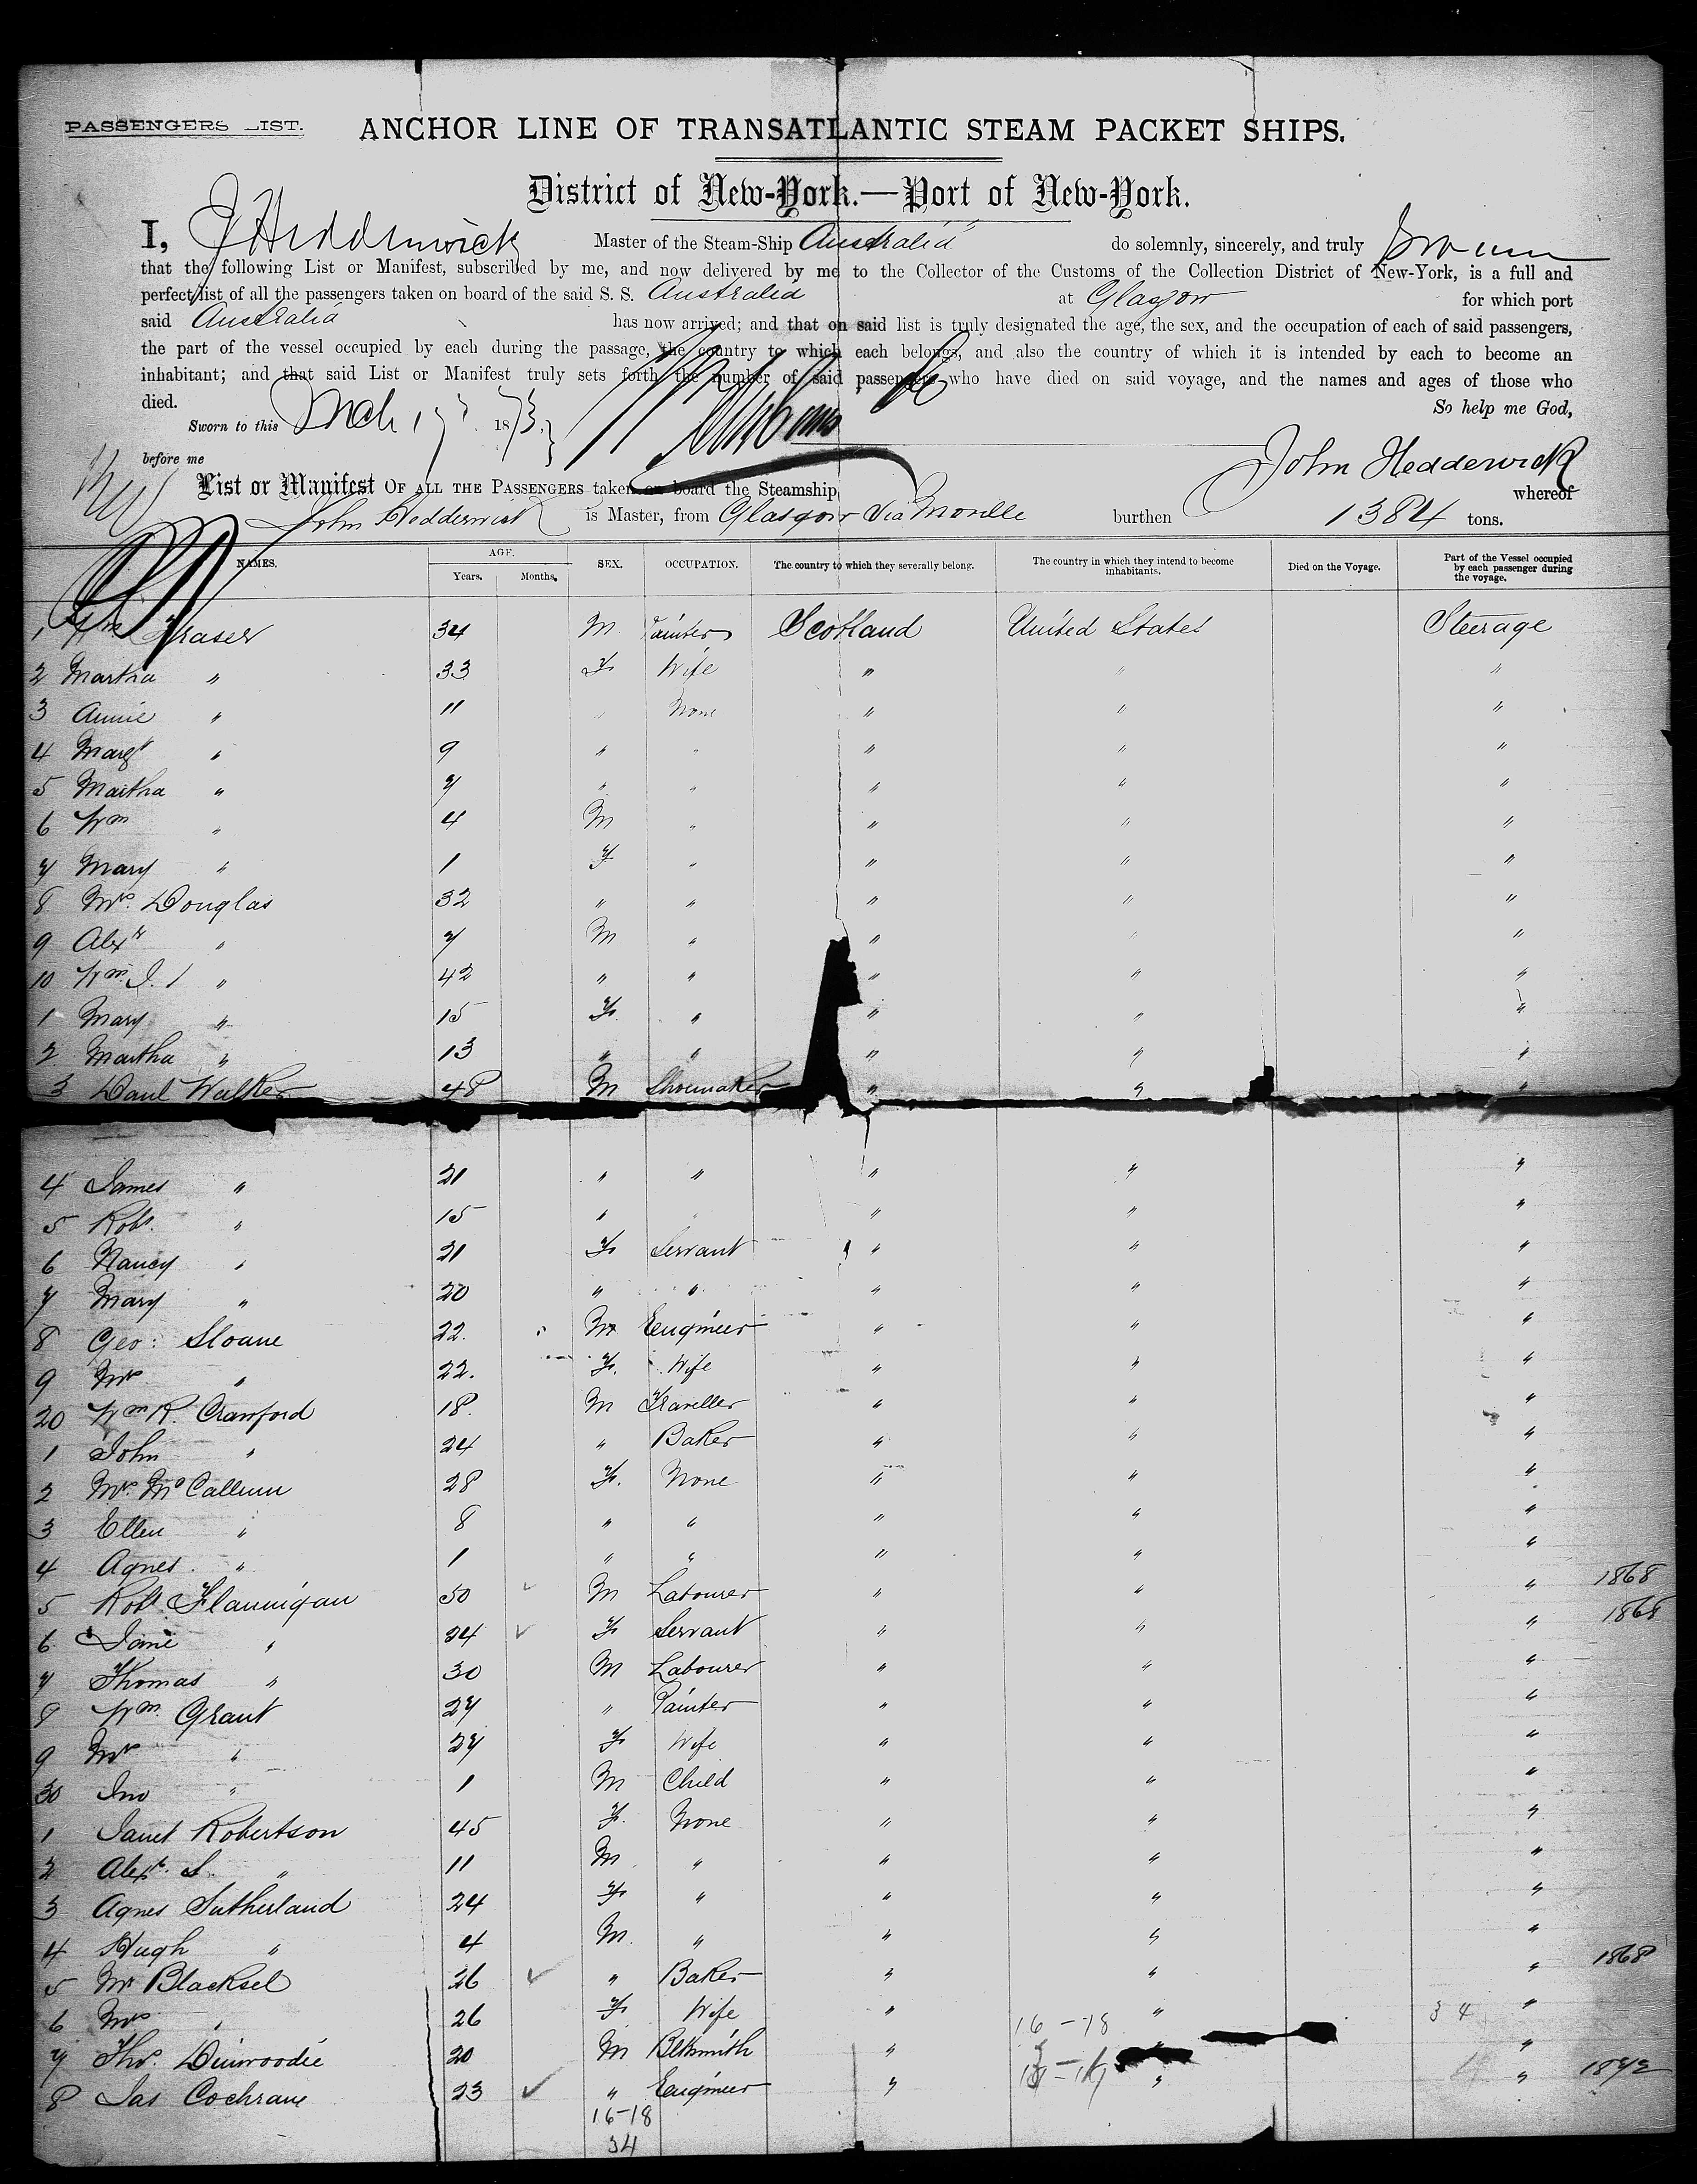 PASSENGERS LIST.
ANCHOR LINE OF TRANSATLANTIC STEAM PACKET SHIPS.
District of New-York.—Port of New-York.
I, J Hedderwick Master of the Steam-Ship Australia do solemnly, sincerely, and truly swear
that the following List or Manifest, subscribed by me, and now delivered by me to the Collector of the Customs of the Collection District of New-York, is a full and
perfect list of all the passengers taken on board of the said S. S. Australia at Glasgow for which port
said Australia has now arrived; and that on said list is truly designated the age, the sex, and the occupation of each of said passengers,
the part of the vessel occupied by each during the passage, the country to which each belongs, and also the country of which it is intended by each to become an
inhabitant; and that said List or Manifest truly sets forth the number of said passengers who have died on said voyage, and the names and ages of those who
died. So help me God,
Sworn to this Mch 17 1873
before me John Hedderwick
List or Manifest OF ALL THE PASSENGERS taken on board the Steamship whereof
John Hedderwick is Master, from Glasgow Via Moville burthen 1384 tons.
NAMES. AGE. Years. Months. SEX. OCCUPATION. The country to which they severally belong. The country in which they intend to become inhabitants. Died on the Voyage. Part of the Vessel occupied by each passenger during the voyage.
1 Wm Fraser 34 M Painter Scotland United States Steerage
2 Martha " 33 F Wife " " "
3 Annie " 11 " None " " "
4 Margt " 9 " " " " "
5 Martha " 7 " " " " "
6 Wm " 4 M " " " "
7 Mary " 1 F " " " "
8 Mrs. Douglas 32 " " " " "
9 Alexr " 7 M " " " "
10 Wm J. " 42 " " " " "
1 Mary " 15 F. " " " "
2 Martha " 13 " " " " "
3 Danl Walker 48 M Shoemaker " " "
4 James " 21 " " " " "
5 Robt. " 15 " " " " "
6 Nancy " 21 F Servant " " "
7 Mary " 20 " " " " "
8 Geo: Sloane 22. M Engineer " " "
9 Mrs " 22. F. Wife " " "
20 Wm R. Crawford 18. M Traveller " " "
1 John " 24 " Baker " " "
2 Mrs. McCallum 28 F. None " " "
3 Ellen " 8 " " " " "
4 Agnes " 1 " " " " "
5 Robt Flannigan 50 M Labourer " " " 1868
6 Jane " 24 F Servant " " " 1868
7 Thomas " 30 M Labourer " " "
8 Wm. Grant 27 " Painter " " "
9 Mrs " 27 F Wife " " "
30 Jno " 1 M Child " " "
1 Janet Robertson 45 F. None " " "
2 Alexr. S. " 11 M " " " "
3 Agnes Sutherland 24 F " " " "
4 Hugh " 4 M. " " " "
5 Mr Blacksel 26 " Baker " " " 1868
6 Mrs " 26 F Wife " " "
16-18 34
7 Thos. Dinwoodie 20 M Blksmith " " "
8 Jas Cochrane 23 " Engineer " " " 1872
16-18
34